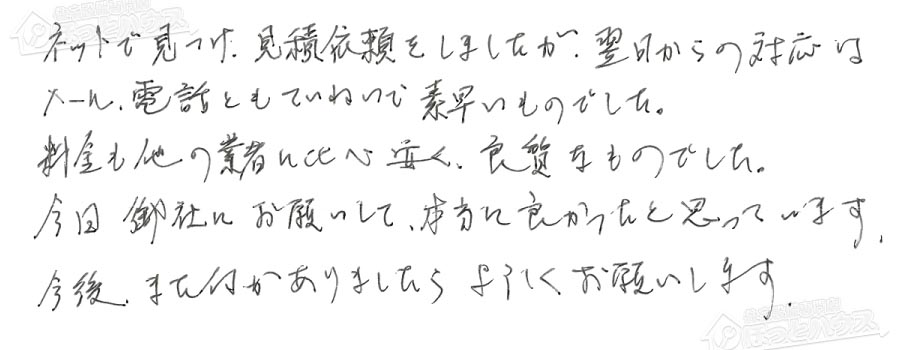 ネットで見つけ、見積依頼をしましたが、翌日からの対応は
メール、電話ともていねいで素早いものでした。
料金も他の業者に比べ安く、良質なものでした。
今日 御社にお願いして、本当に良かったと思っています。
今後、また何かありましたらよろしくお願いします。
ほっとハウス